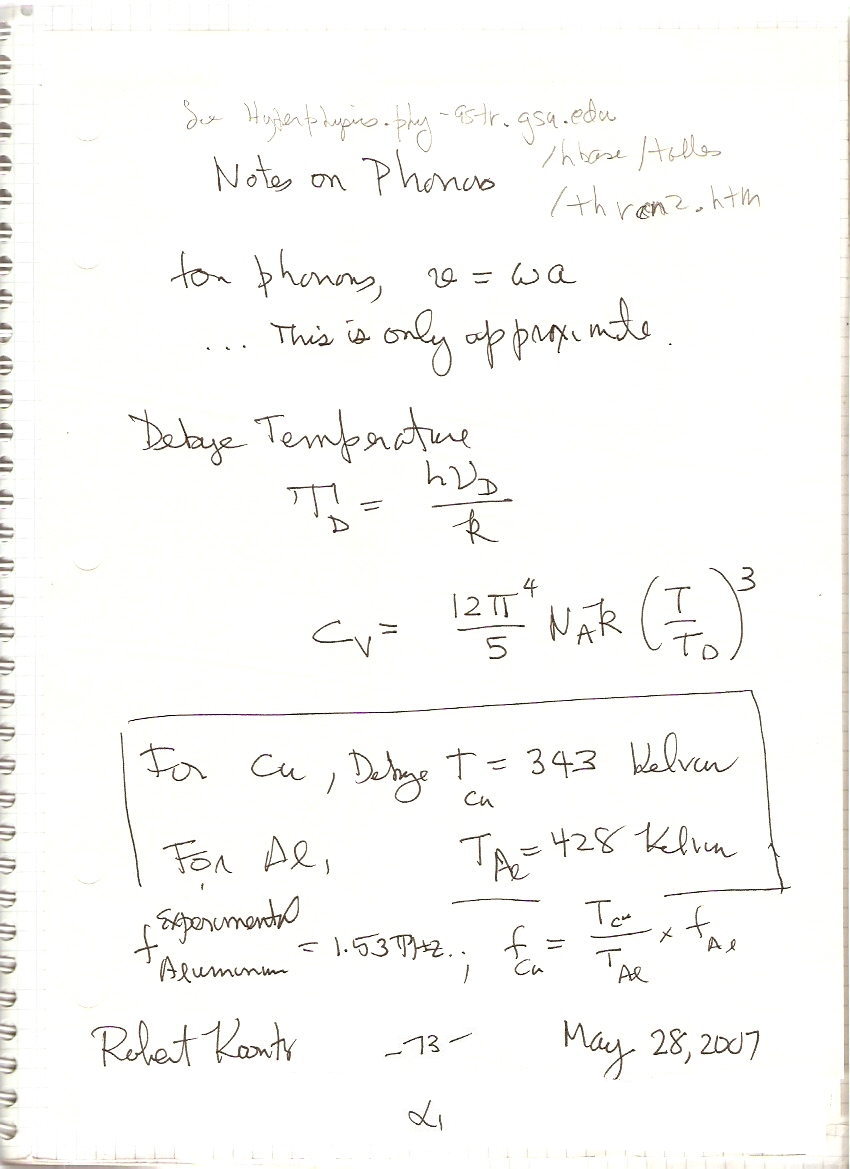 See Hyperphysics.phy-astr.gsu.edu
/hbase/tables
Notes on Phonons
/thrcn2.htm
for phonons, v = ωa
... This is only approximate.
Debye Temperature
T_D = hν_D / k
C_V = 12π⁴/5 N_A k (T/T_D)³
For Cu, Debye T_Cu = 343 Kelvin
For Al, T_Al = 428 Kelvin
f Experimental Aluminum = 1.53 THz.; f_Cu = T_Cu/T_Al × f_Al
Robert Koontz -73- May 28, 2007
α₁